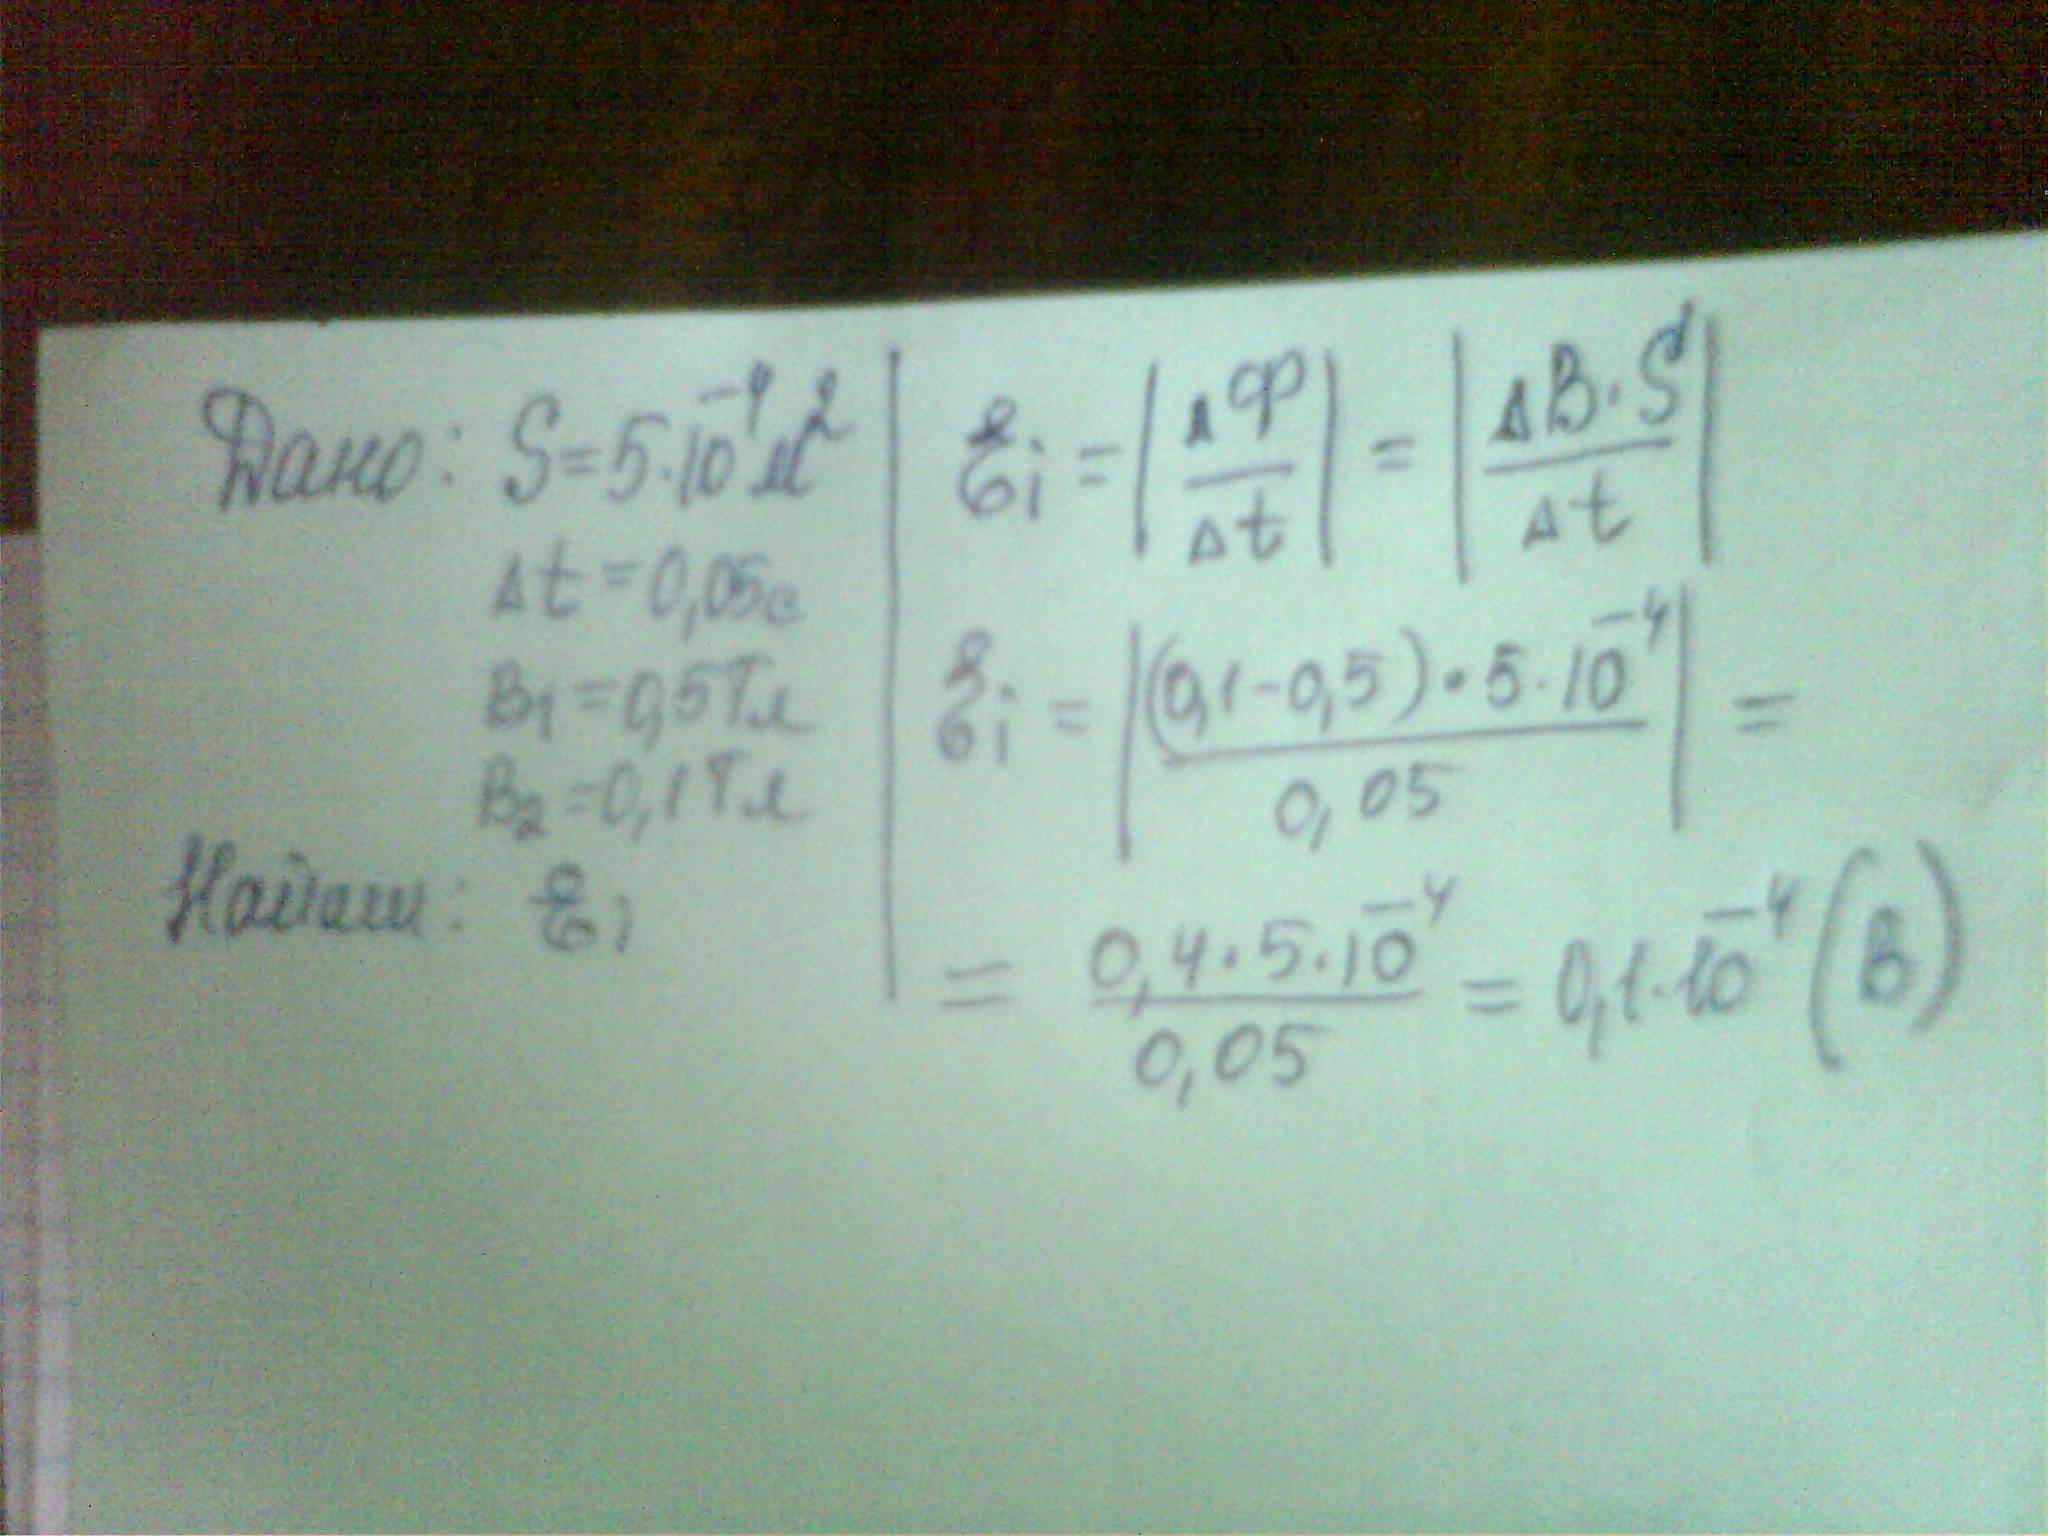 Дано: S=5·10⁻⁴м²
Δt=0,05с
B₁=0,5Тл
B₂=0,1Тл
Найти: ℰi
ℰi = |ΔФ/Δt| = |ΔB·S/Δt|
ℰi = |(0,1-0,5)·5·10⁻⁴/0,05| =
= 0,4·5·10⁻⁴/0,05 = 0,1·10⁻⁴(В)